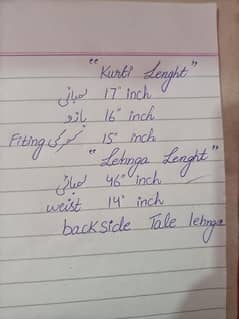 "Kurti Lenght"
لمبائی 17" inch
بازو 16" inch
Fiting کمر کی 15" inch
"Lehnga Lenght"
لمبائی 46" inch
weist 14" inch
backside Tale lehnga